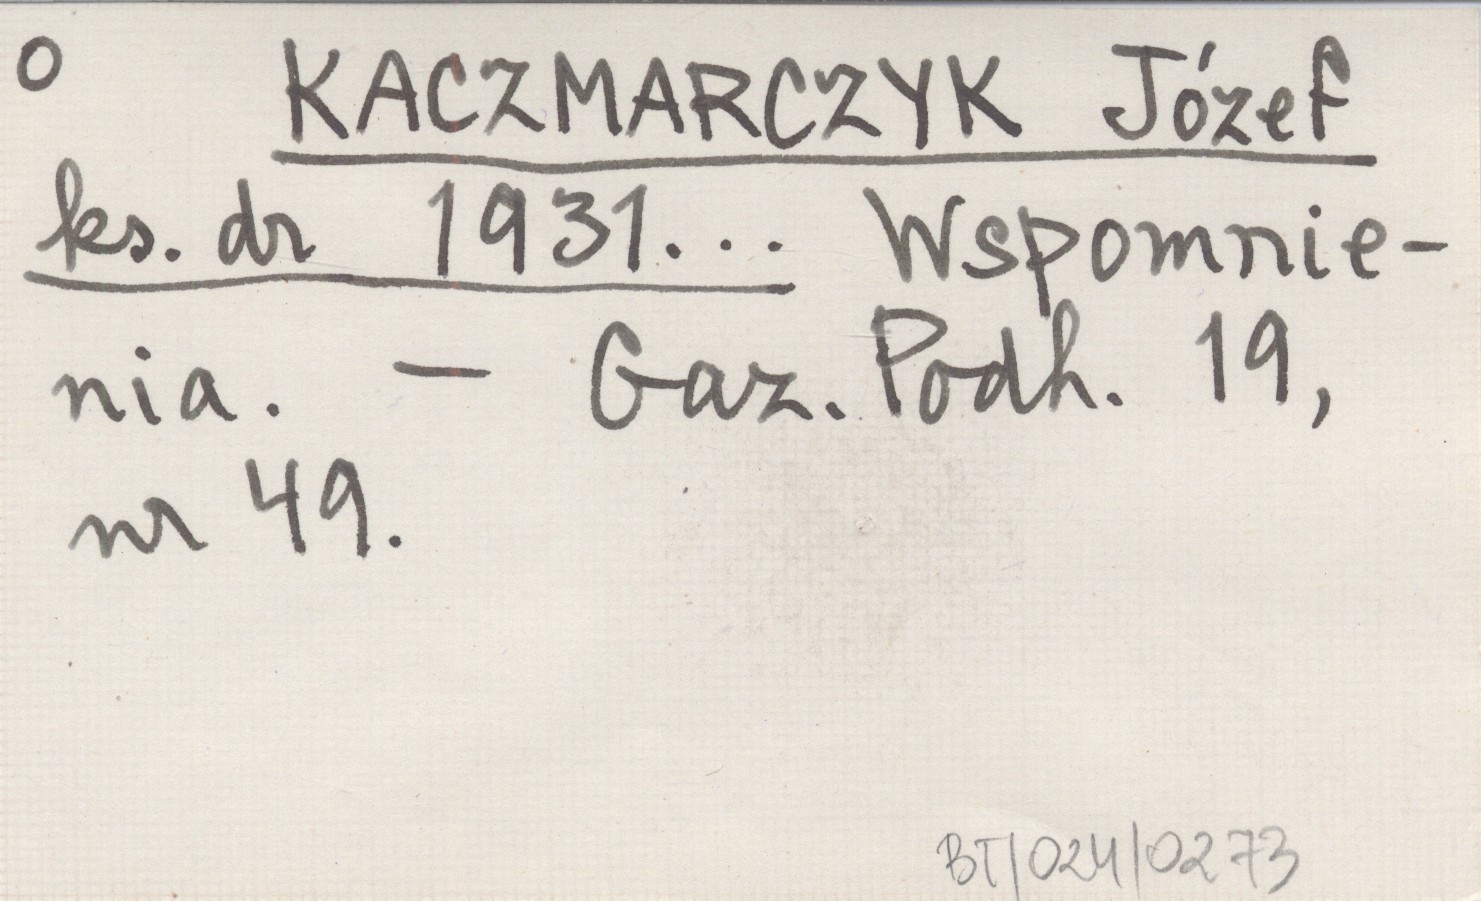 o KACZMARCZYK Józef
ks. dr 1931... Wspomnie-
nia. — Gaz. Podh. 19,
nr 49.
BT/024/0273